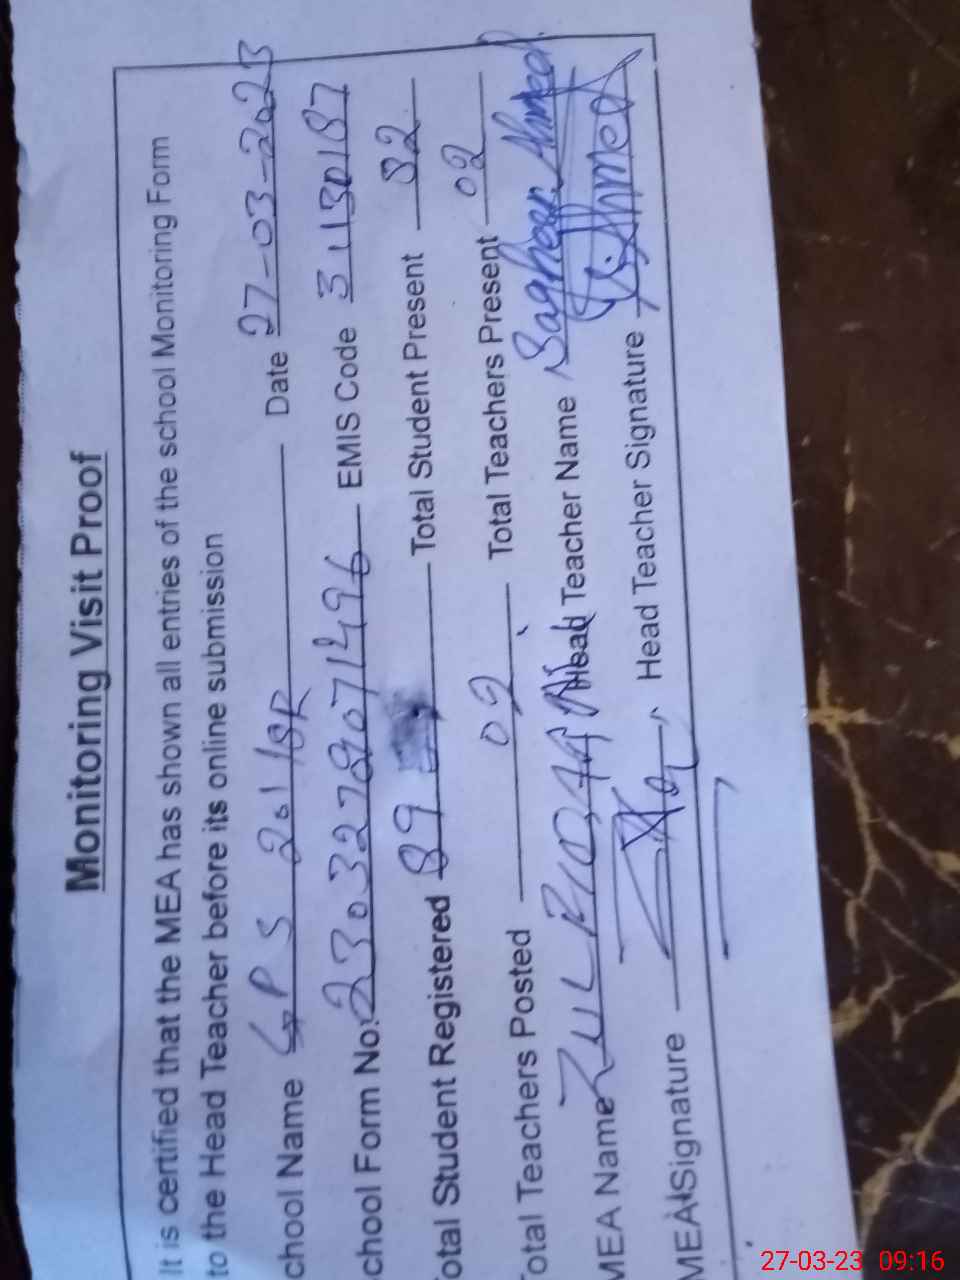 Monitoring Visit Proof
It is certified that the MEA has shown all entries of the school Monitoring Form
to the Head Teacher before its online submission
chool Name GPS 201/8R Date 27-03-2023
chool Form No: 23032789071496 EMIS Code 31130187
otal Student Registered 89 Total Student Present 82
otal Teachers Posted 02 Total Teachers Present 02
MEA Name Head Teacher Name Ahmed
MEA Signature Head Teacher Signature
27-03-23 09:16